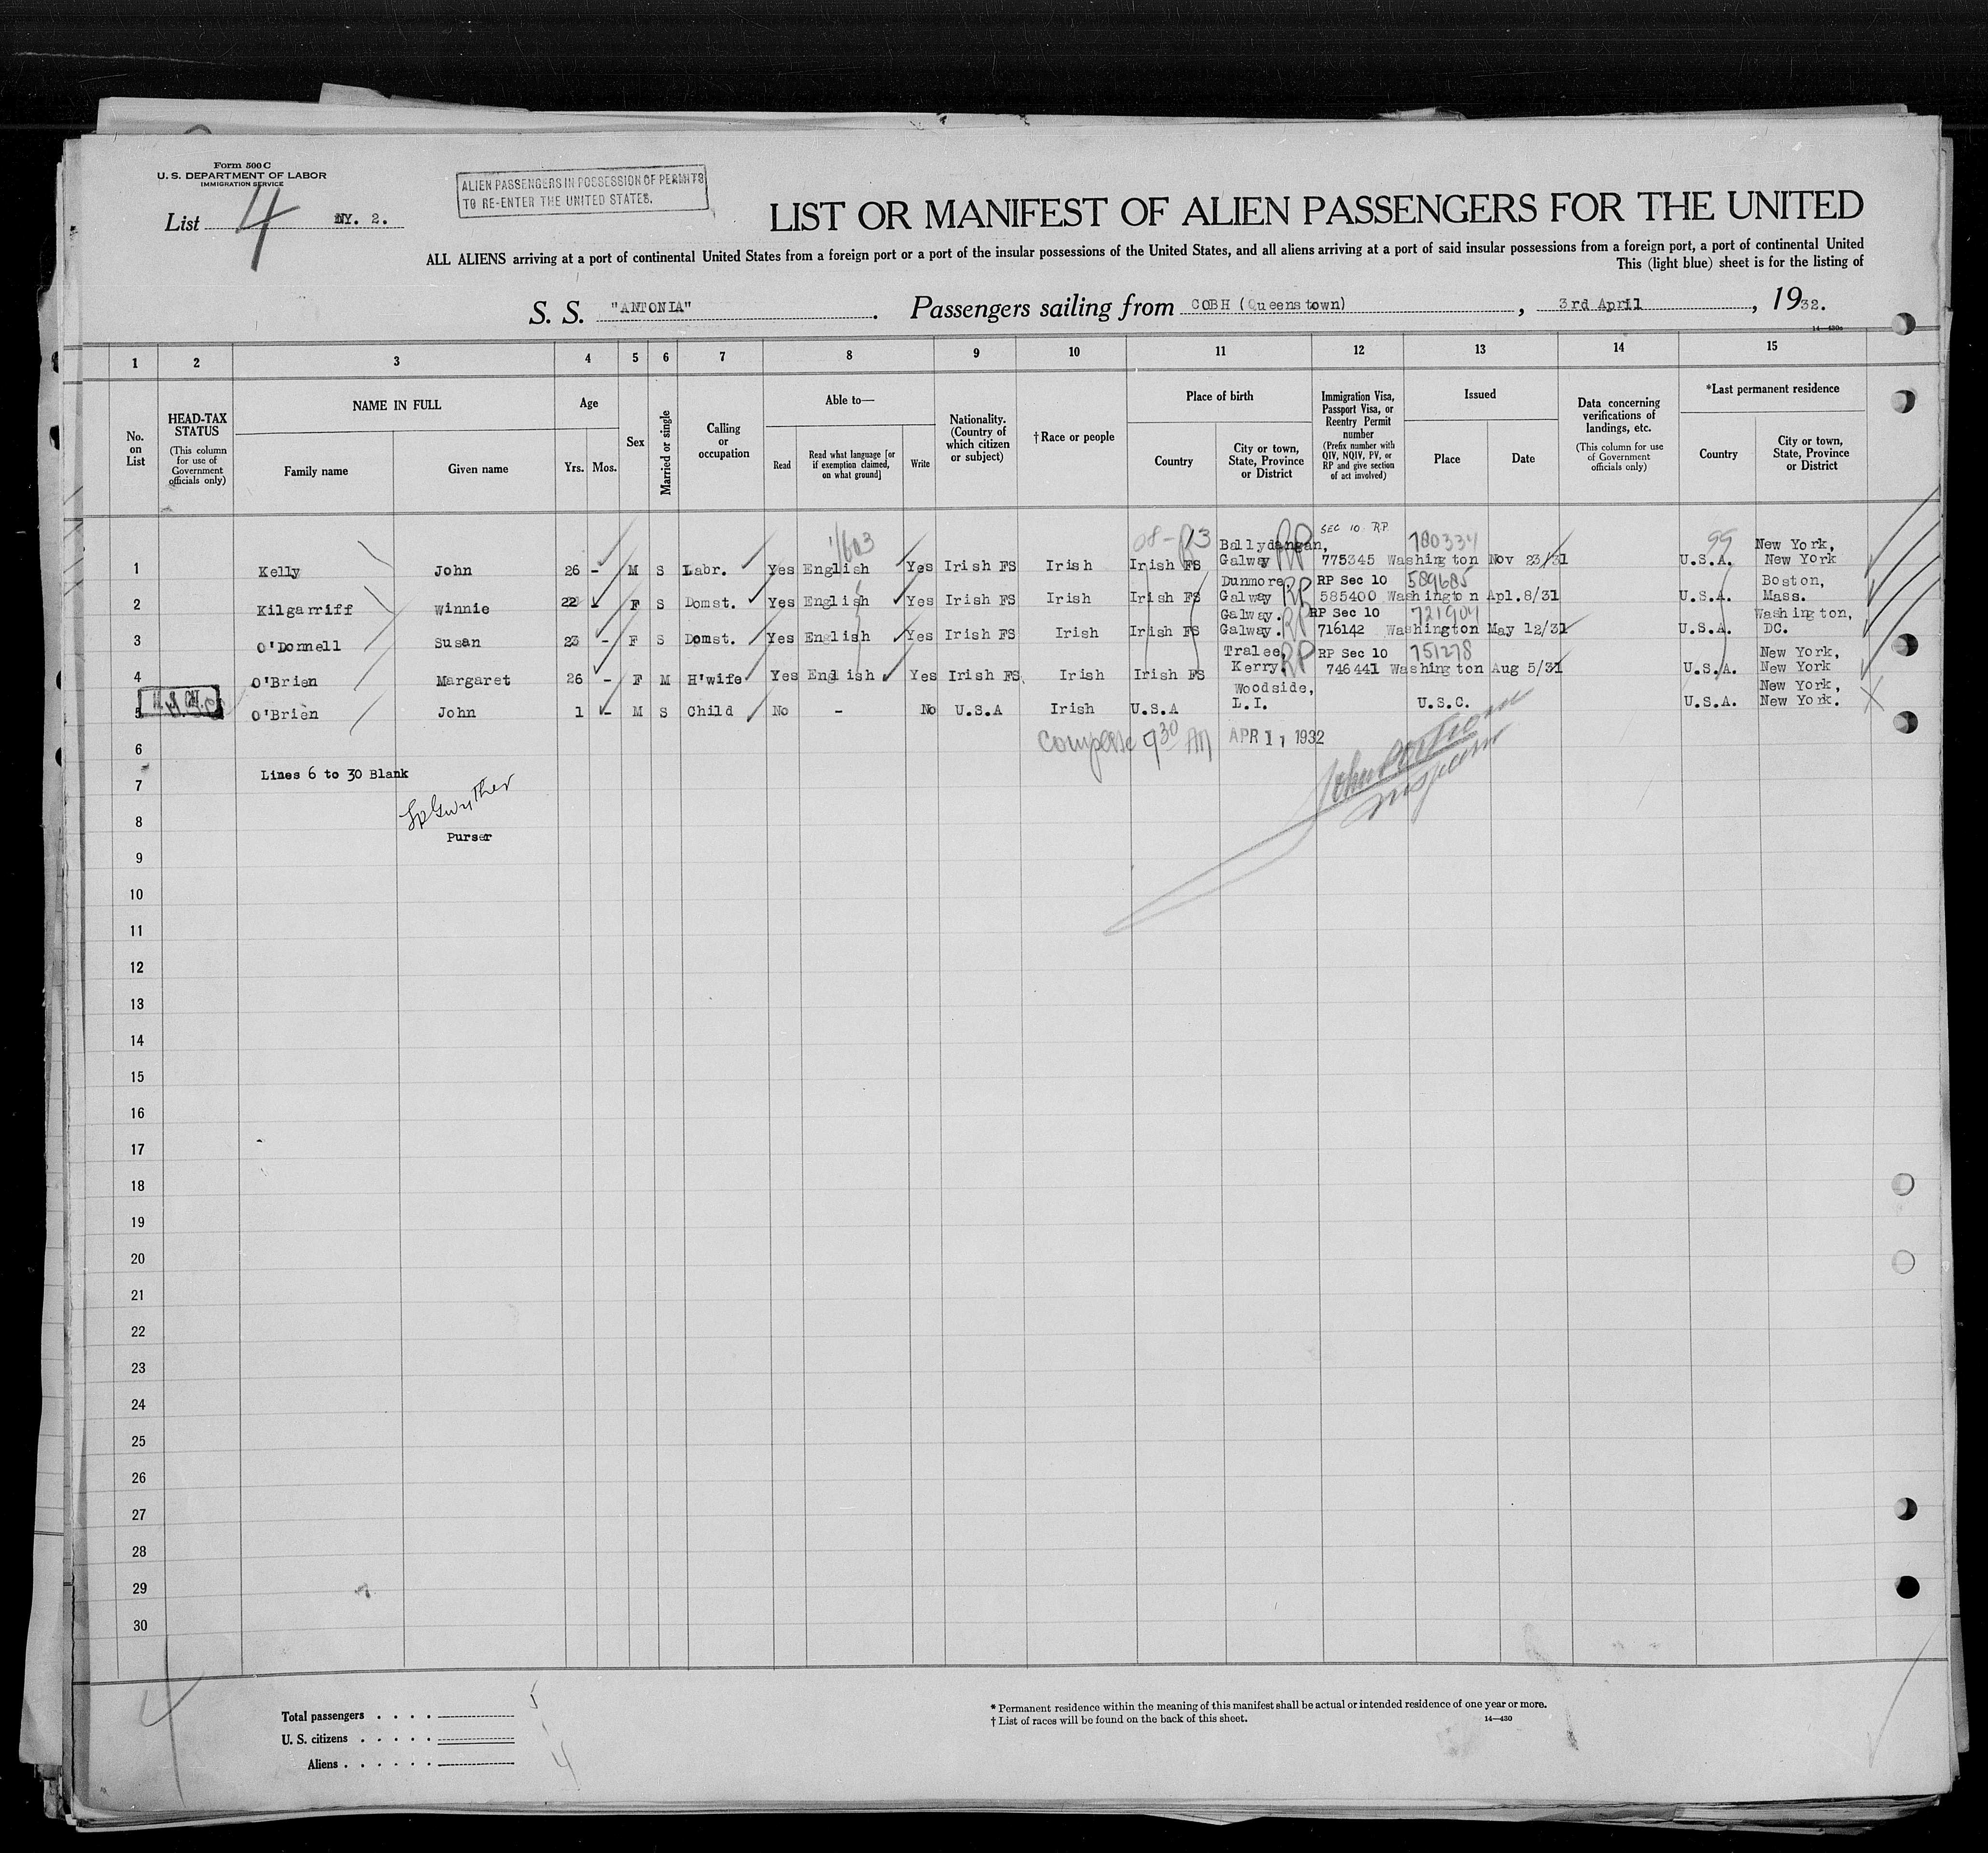 Form 500 C
U. S. DEPARTMENT OF LABOR
IMMIGRATION SERVICE
ALIEN PASSENGERS IN POSSESSION OF PERMITS
TO RE-ENTER THE UNITED STATES.
List 4 NY. 2.
LIST OR MANIFEST OF ALIEN PASSENGERS FOR THE UNITED
ALL ALIENS arriving at a port of continental United States from a foreign port or a port of the insular possessions of the United States, and all aliens arriving at a port of said insular possessions from a foreign port, a port of continental United
This (light blue) sheet is for the listing of
S. S. "ANTONIA". Passengers sailing from COBH (Queenstown), 3rd April, 1932.
14—430a
1 2 3 4 5 6 7 8 9 10 11 12 13 14 15
No. on List
HEAD-TAX STATUS (This column for use of Government officials only)
NAME IN FULL
Family name
Given name
Age
Yrs. Mos.
Sex
Married or single
Calling or occupation
Able to—
Read
Read what language [or if exemption claimed, on what ground]
Write
Nationality. (Country of which citizen or subject)
† Race or people
Place of birth
Country
City or town, State, Province or District
Immigration Visa, Passport Visa, or Reentry Permit number (Prefix number with QIV, NQIV, PV, or RP and give section of act involved)
Issued
Place
Date
Data concerning verifications of landings, etc. (This column for use of Government officials only)
*Last permanent residence
Country
City or town, State, Province or District
1603 08- 13 SEC 10 RP. 780334 99
1 Kelly John 26 - M S Labr. Yes English Yes Irish FS Irish Irish FS Ballydangan, Galway RP 775345 Washington Nov 23/31 U.S.A. New York, New York
2 Kilgarriff Winnie 22 F S Domst. Yes English Yes Irish FS Irish Irish FS Dunmore, Galway RP RP Sec 10 585400 589685 Washington Apl.8/31 U.S.A. Boston, Mass.
3 O'Donnell Susan 23 - F S Domst. Yes English Yes Irish FS Irish Irish FS Galway. Galway. RP RP Sec 10 716142 721904 Washington May 12/31 U.S.A. Washington, DC.
4 O'Brien Margaret 26 - F M H'wife Yes English Yes Irish FS Irish Irish FS Tralee, Kerry. RP RP Sec 10 746441 751278 Washington Aug 5/31 U.S.A. New York, New York
5 O'Brien John 1 - M S Child No - No U.S.A Irish U.S.A Woodside, L.I. U.S.C. U.S.A. New York, New York.
6
930 AM APR 11 1932
Lines 6 to 30 Blank
7
8
Purser
9
10
11
12
13
14
15
16
17
18
19
20
21
22
23
24
25
26
27
28
29
30
Total passengers . . . . 5
U. S. citizens . . . . . 1
Aliens . . . . . . 4
* Permanent residence within the meaning of this manifest shall be actual or intended residence of one year or more.
† List of races will be found on the back of this sheet.
14—430